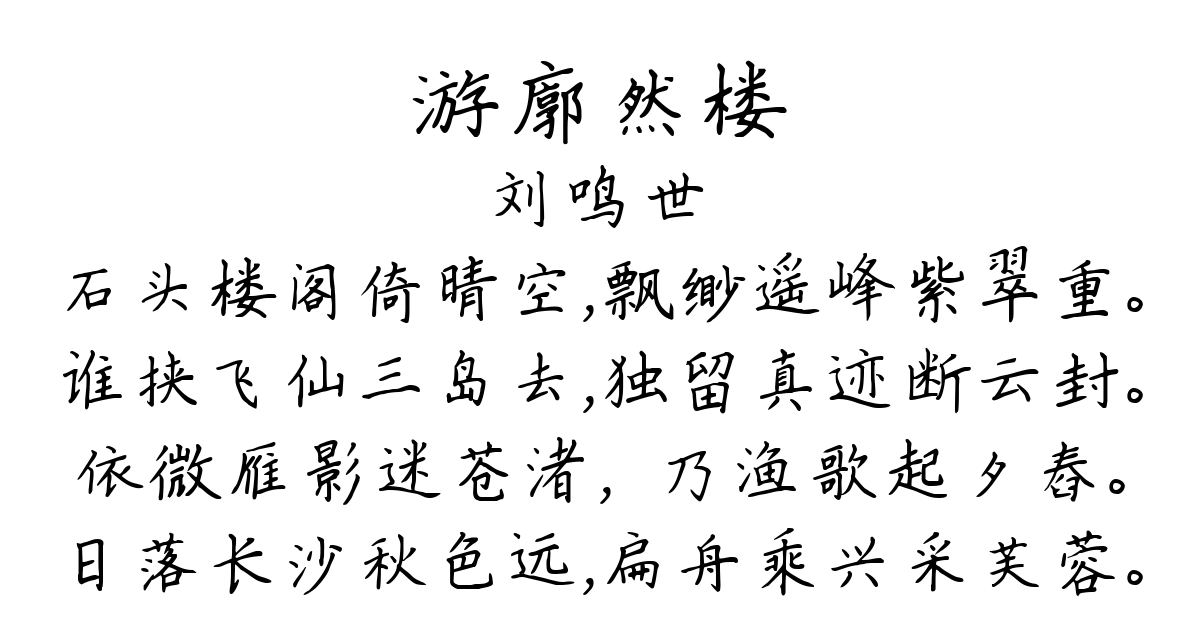 游廓然楼
刘鸣世
石头楼阁倚晴空,飘缈遥峰紫翠重。
谁挟飞仙三岛去,独留真迹断云封。
依微雁影迷苍渚，乃渔歌起夕舂。
日落长沙秋色远,扁舟乘兴采芙蓉。